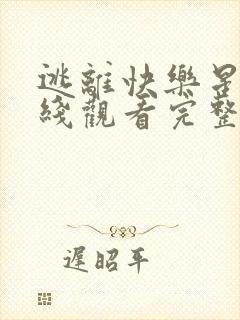 逃離快樂
綫觀看完整
遲昭平